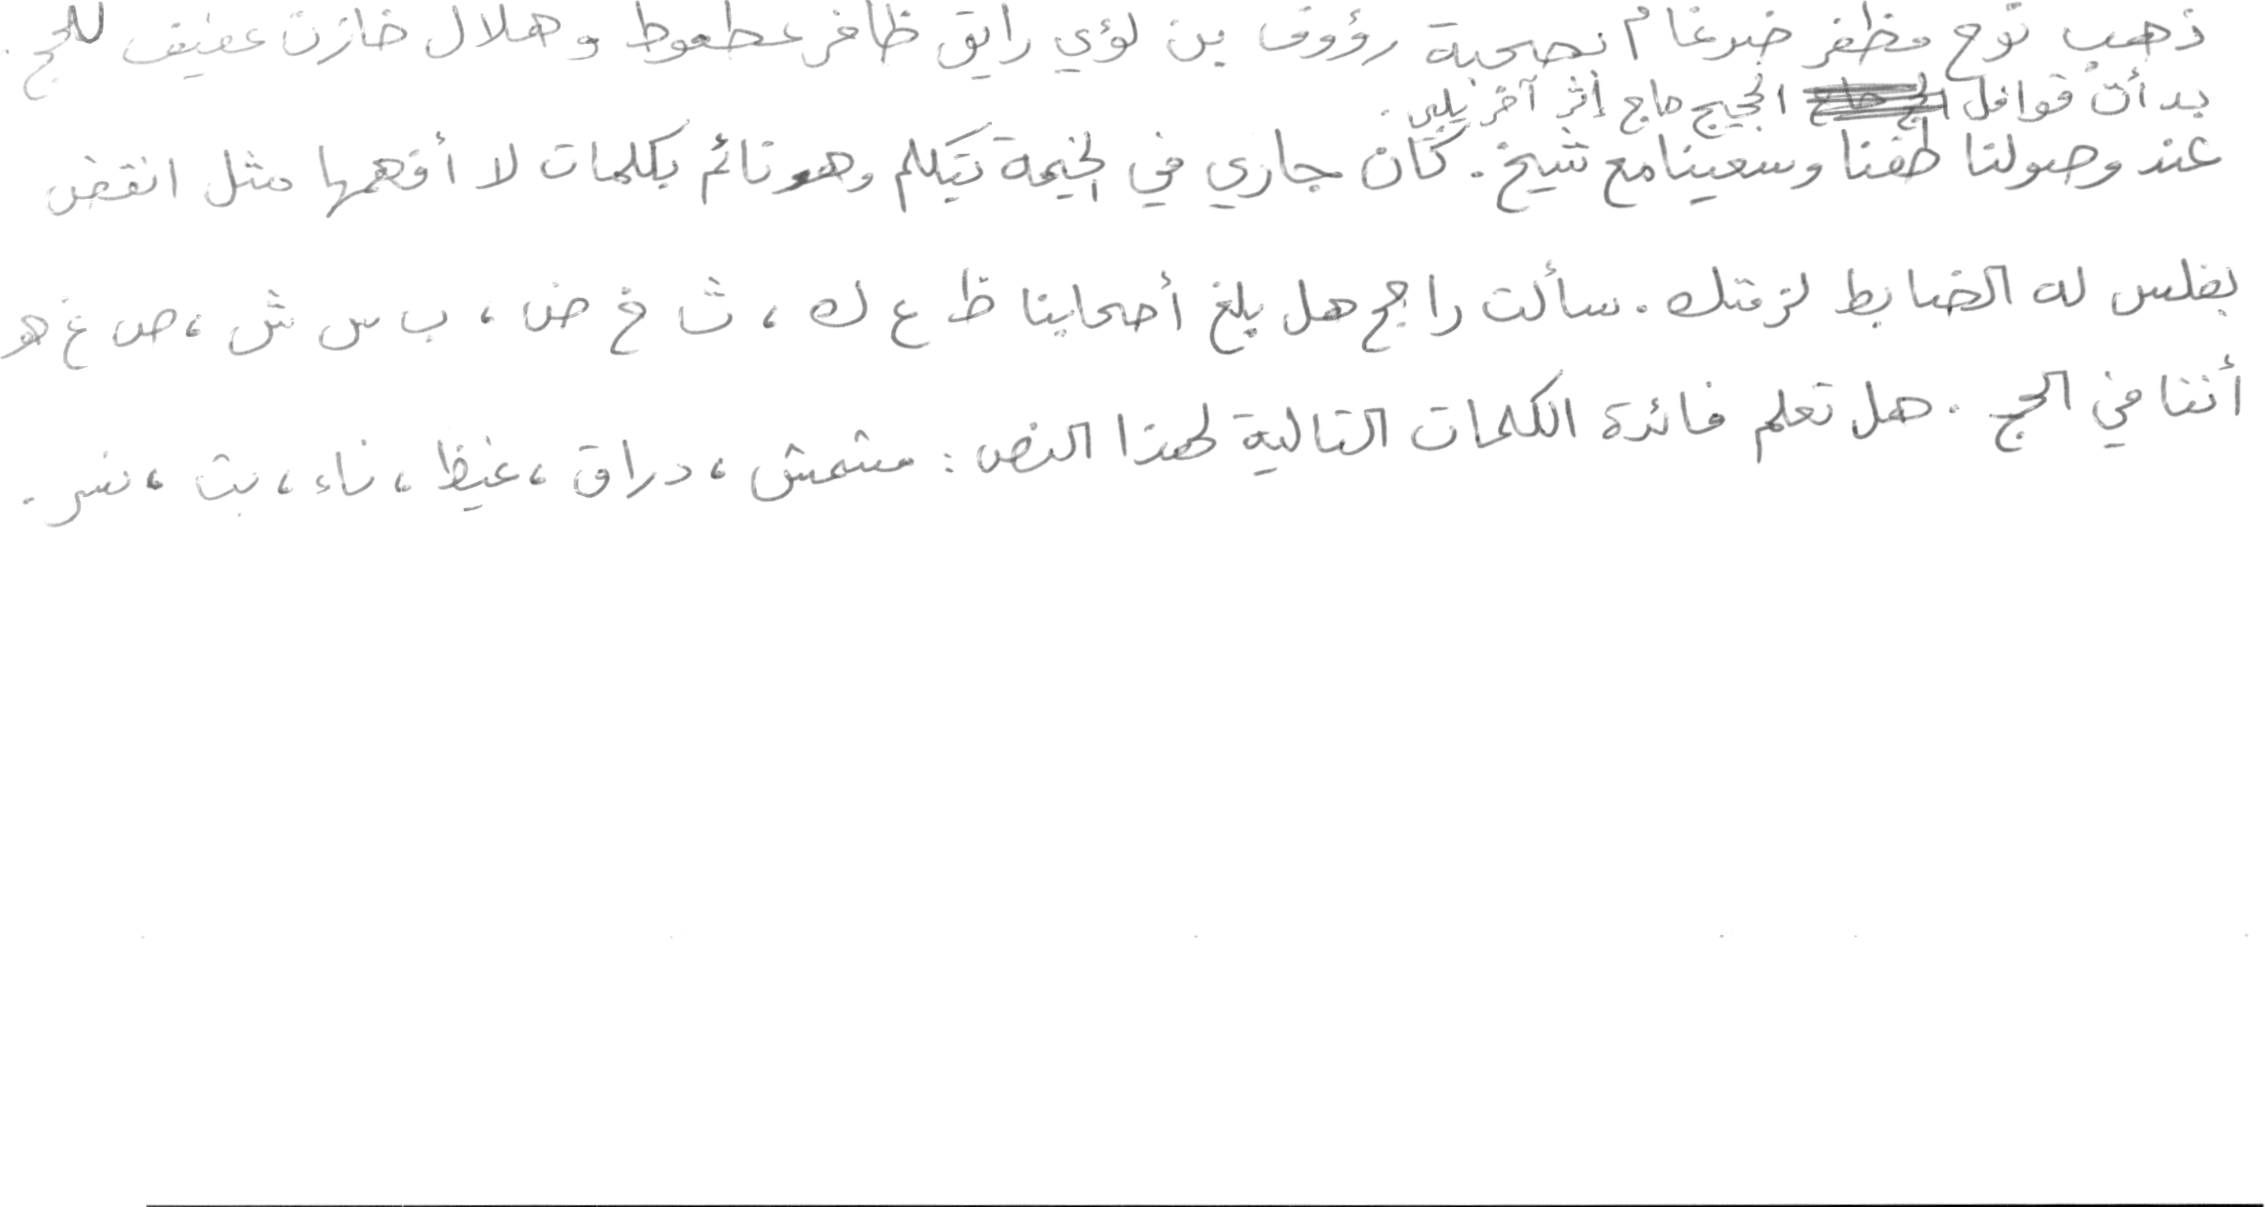 ذهب نوح مظفر ضرغام بصحبة رؤوف بن لؤي رايق ظافر عطعوط و هلال خازن عفيف للحج .
بدأت قوافل الحجيج حاج إثر آخر يلبي .
عند وصولنا طفنا وسعينا مع شيخ . كان جاري في الخيمة يتكلم وهو نائم بكلمات لا أفهمها مثل انقض
بفلس له الضابط لزمتك . سألت راجح هل بلغ أصحابنا ظ ع ك ، ث خ ض ، ب س ش ، ص غ هـ
أننا في الحج . هل تعلم فائدة الكلمات التالية لهذا النص : مشمش ، دراق ، غيظ ، ناء ، بت ، نسر .